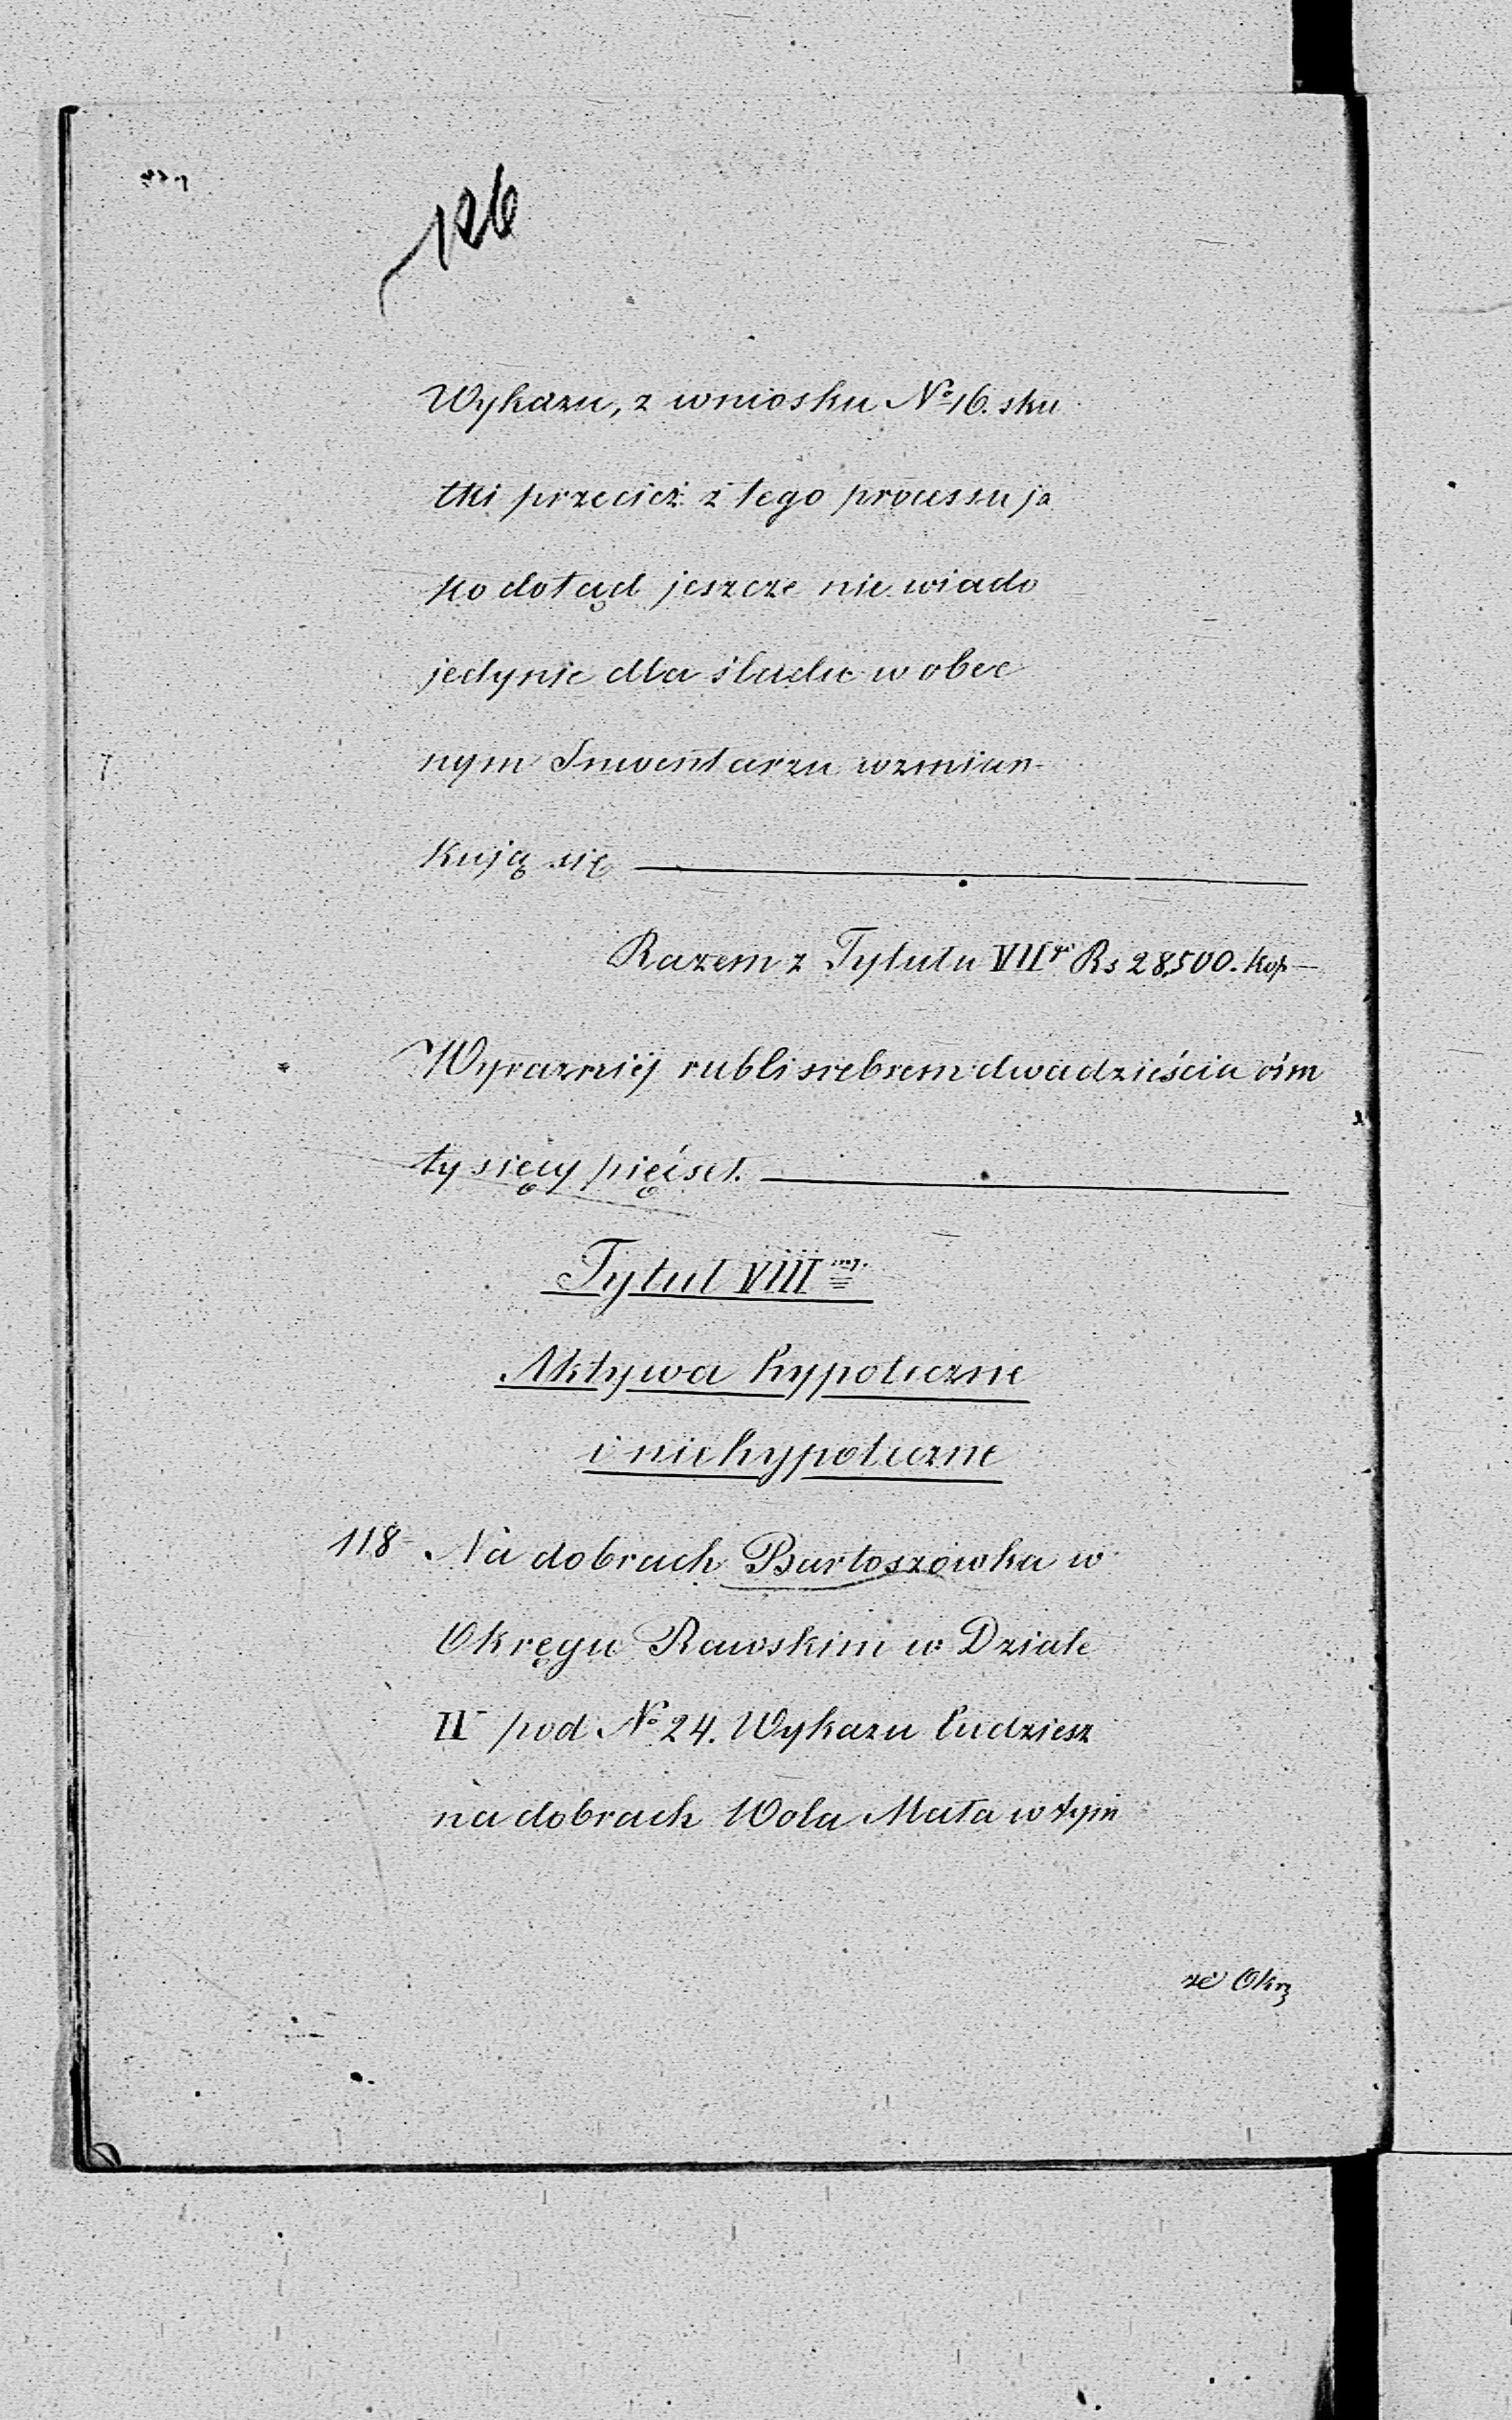 126
Wykazu, z wniosku No 16. sku
tki przecież z tego processu ja
ko dotąd jeszcze nie wiado
jedynie dla śladu w obec
nym Inwentarzu wzmian-
kują się
Razem z Tytułu VIIgo Rs 28,500. kop —
Wyraźniéj rubli srebrem dwadzieścia ośm
tysięcy pięćset.
Tytuł VIIImy.
Aktywa hypoteczne
i niehypoteczne
118 Na dobrach Bartoszówka w
Okręgu Rawskim w Dziale
II pod No 24. Wykazu tudziesz
na dobrach Wola Mała w tym
że Okrę